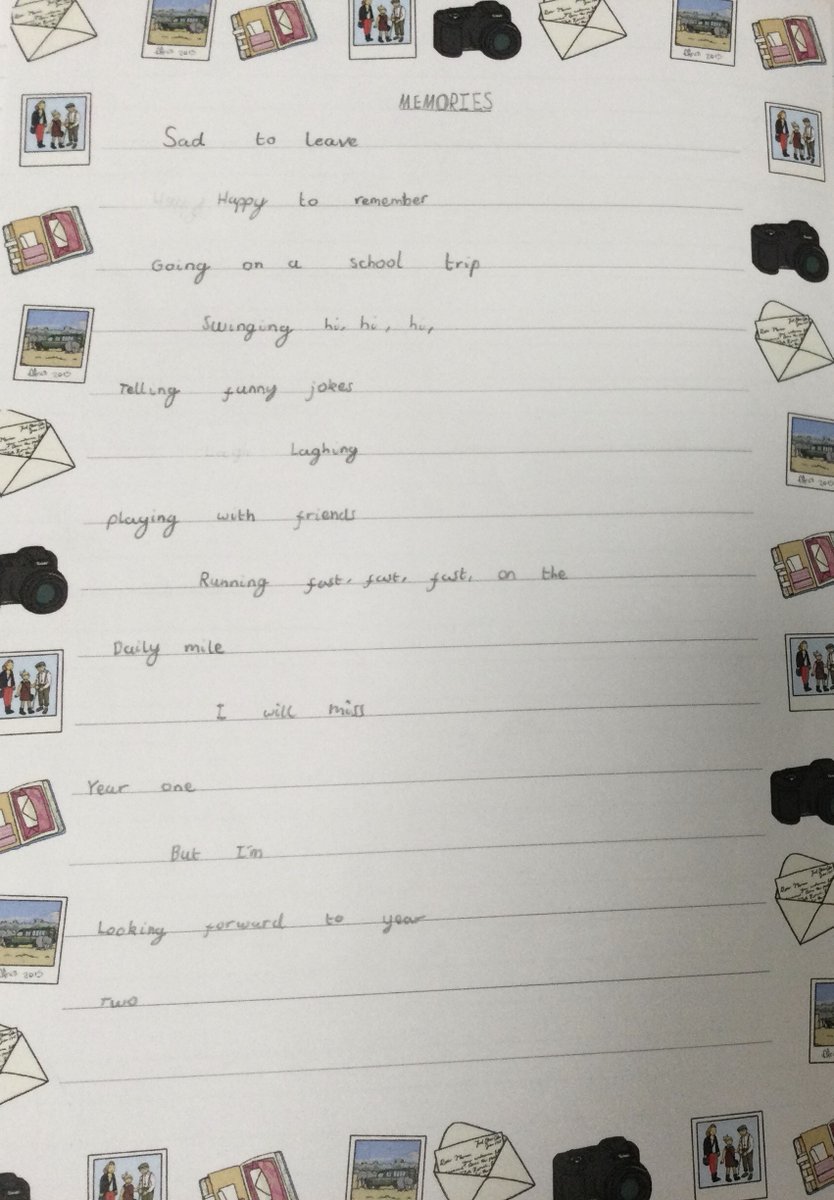 MEMORIES
Sad to leave
Happy to remember
Going on a school trip
Swinging hi, hi, hi,
Telling funny jokes
Laghing
playing with friends
Running fast, fast, fast, on the
Daily mile
I will miss
Year one
But I'm
Looking forward to year
Two